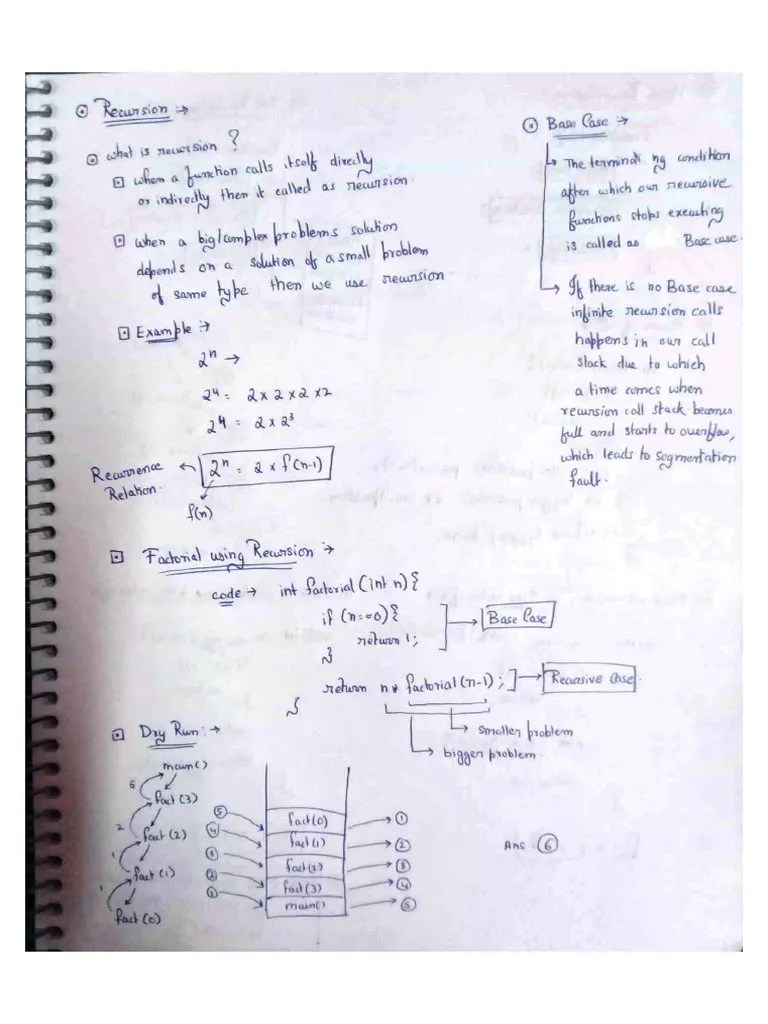 Recursion :→
What is recursion ?
when a function calls itself directly
or indirectly then it called as recursion.
when a big/complex problems solution
depends on a solution of a small problem
of same type then we use recursion.
Example :→
2ⁿ →
2⁴ = 2 × 2 × 2 × 2
2⁴ = 2 × 2³
Recurrence
Relation.
2ⁿ = 2 × f(n-1)
f(n)
Base Case :→
The terminating condition
after which our recursive
functions stops executing
is called as Base case.
If there is no Base case
infinite recursion calls
happens in our call
stack due to which
a time comes when
recursion call stack becomes
full and starts to overflow,
which leads to segmentation
fault.
Factorial using Recursion :→
code → int factorial (int n) {
if (n==0) {
return 1;
}
Base Case
return n * factorial (n-1) ;
Recursive Case.
}
smaller problem
bigger problem.
Dry Run :→
main()
6
fact(3)
2
fact(2)
1
fact(1)
1
fact(0)
5 fact(0) 1
4 fact(1) 2
3 fact(2) 3
2 fact(3) 4
1 main() 5
Ans 6